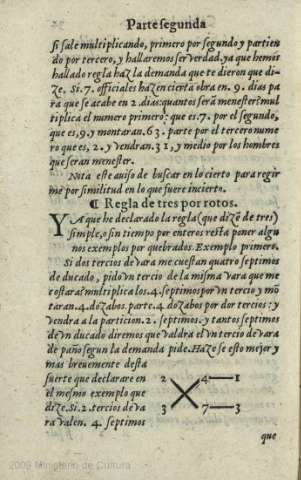 Parte segunda
si sale multiplicando, primero por segundo y partien
do por tercero, y hallaremos ser verdad. ya que hemos
hallado regla haz la demanda que te dieron que di-
ze. Si. 7. officiales hazen cierta obra en. 9. dias pa
ra que se acabe en 2. dias: quantos será menester? mul
tiplica el numero primero: que es. 7. por el segundo,
que es, 9. y montaran. 63. parte por el tercero nume
ro que es, 2. y vendran. 31, y medio por los hombres
que seran menester.
Nota este auiso de buscar en lo cierto para regir
me por similitud en lo que fuere incierto.
¶ Regla de tres por rotos.
YA que he declarado la regla (que dizē de tres)
simple, o sin tiempo por enteros resta poner algu
nos exemplos por quebrados. Exemplo primero.
Si dos tercios de vara me cuestan quatro septimos
de ducado, pido vn tercio de la misma vara que me
costara? multiplica los. 4. septimos por vn tercio y mō
taran. 4. dozabos. parte. 4. dozabos por dos tercios: y
vendra a la particion. 2. septimos. y tantos septimos
de vn ducado diremos que valdra el vn tercio de vara
de paño segun la demanda pide. Haze se esto mejor y
mas breuemente desta
suerte que declarare en
el mesmo exemplo que
dize. Si. 2. tercios de va
ra valen. 4. septimos
2 4—1
3 7—3
que
2009 Ministerio de Cultura